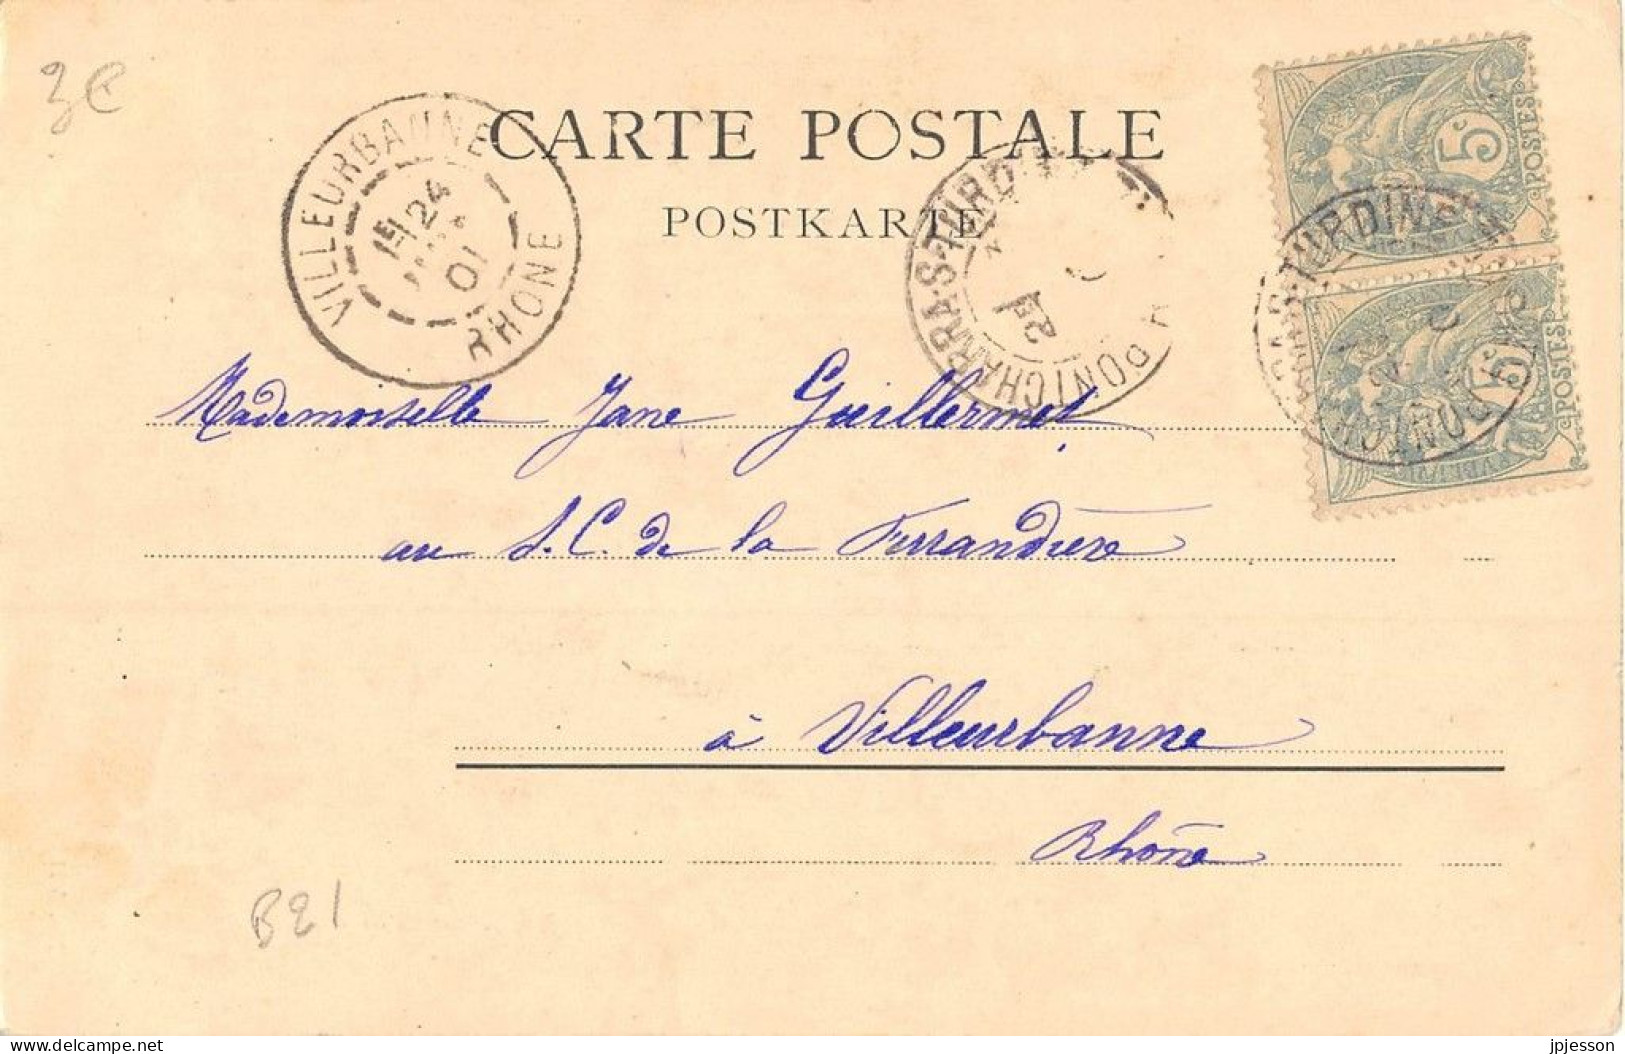 3€
CARTE POSTALE
POSTKARTE
VILLEURBANNE
1E
24
01
RHONE
PONTCHARRA-S-TURDINE
24
5c
POSTES
5c
POSTES
Mademoiselle Jane Guillermet
au S.C. de la Ferrandière
à Villeurbanne
Rhône
B21
delcampe.net
jpjesson